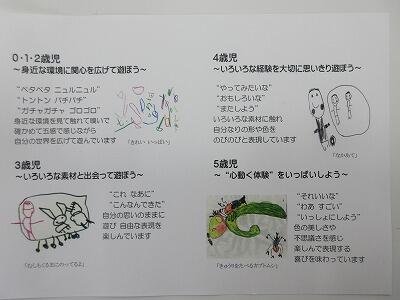 0・1・2歳児
～身近な環境に関心を広げて遊ぼう～
"ペタペタ ニュルニュル"
"トントン パチパチ"
"ガチャガチャ ゴロゴロ"
身近な環境を見て触れて嗅いで
確かめて五感で感じながら
自分の世界を広げて遊んでいます
「きれい いっぱい」
4歳児
～いろいろな経験を大切に思いきり遊ぼう～
"やってみたいな"
"おもしろいな"
"またしよう"
いろいろな素材に触れ
自分なりの形や色を
のびのびと表現しています
「なかあて」
3歳児
～いろいろな素材と出会って遊ぼう～
"これ なあに"
"こんなんできた"
自分の思いのままに
遊び 自由な表現を
楽しんでいます
5歳児
～ "心動く体験" をいっぱいしよう～
"それいいな"
"わあ すごい"
"いっしょにしよう"
色の美しさや
不思議さを感じ
楽しんで表現する
喜びを味わっています
「きゅうりをたべるカブトムシ」